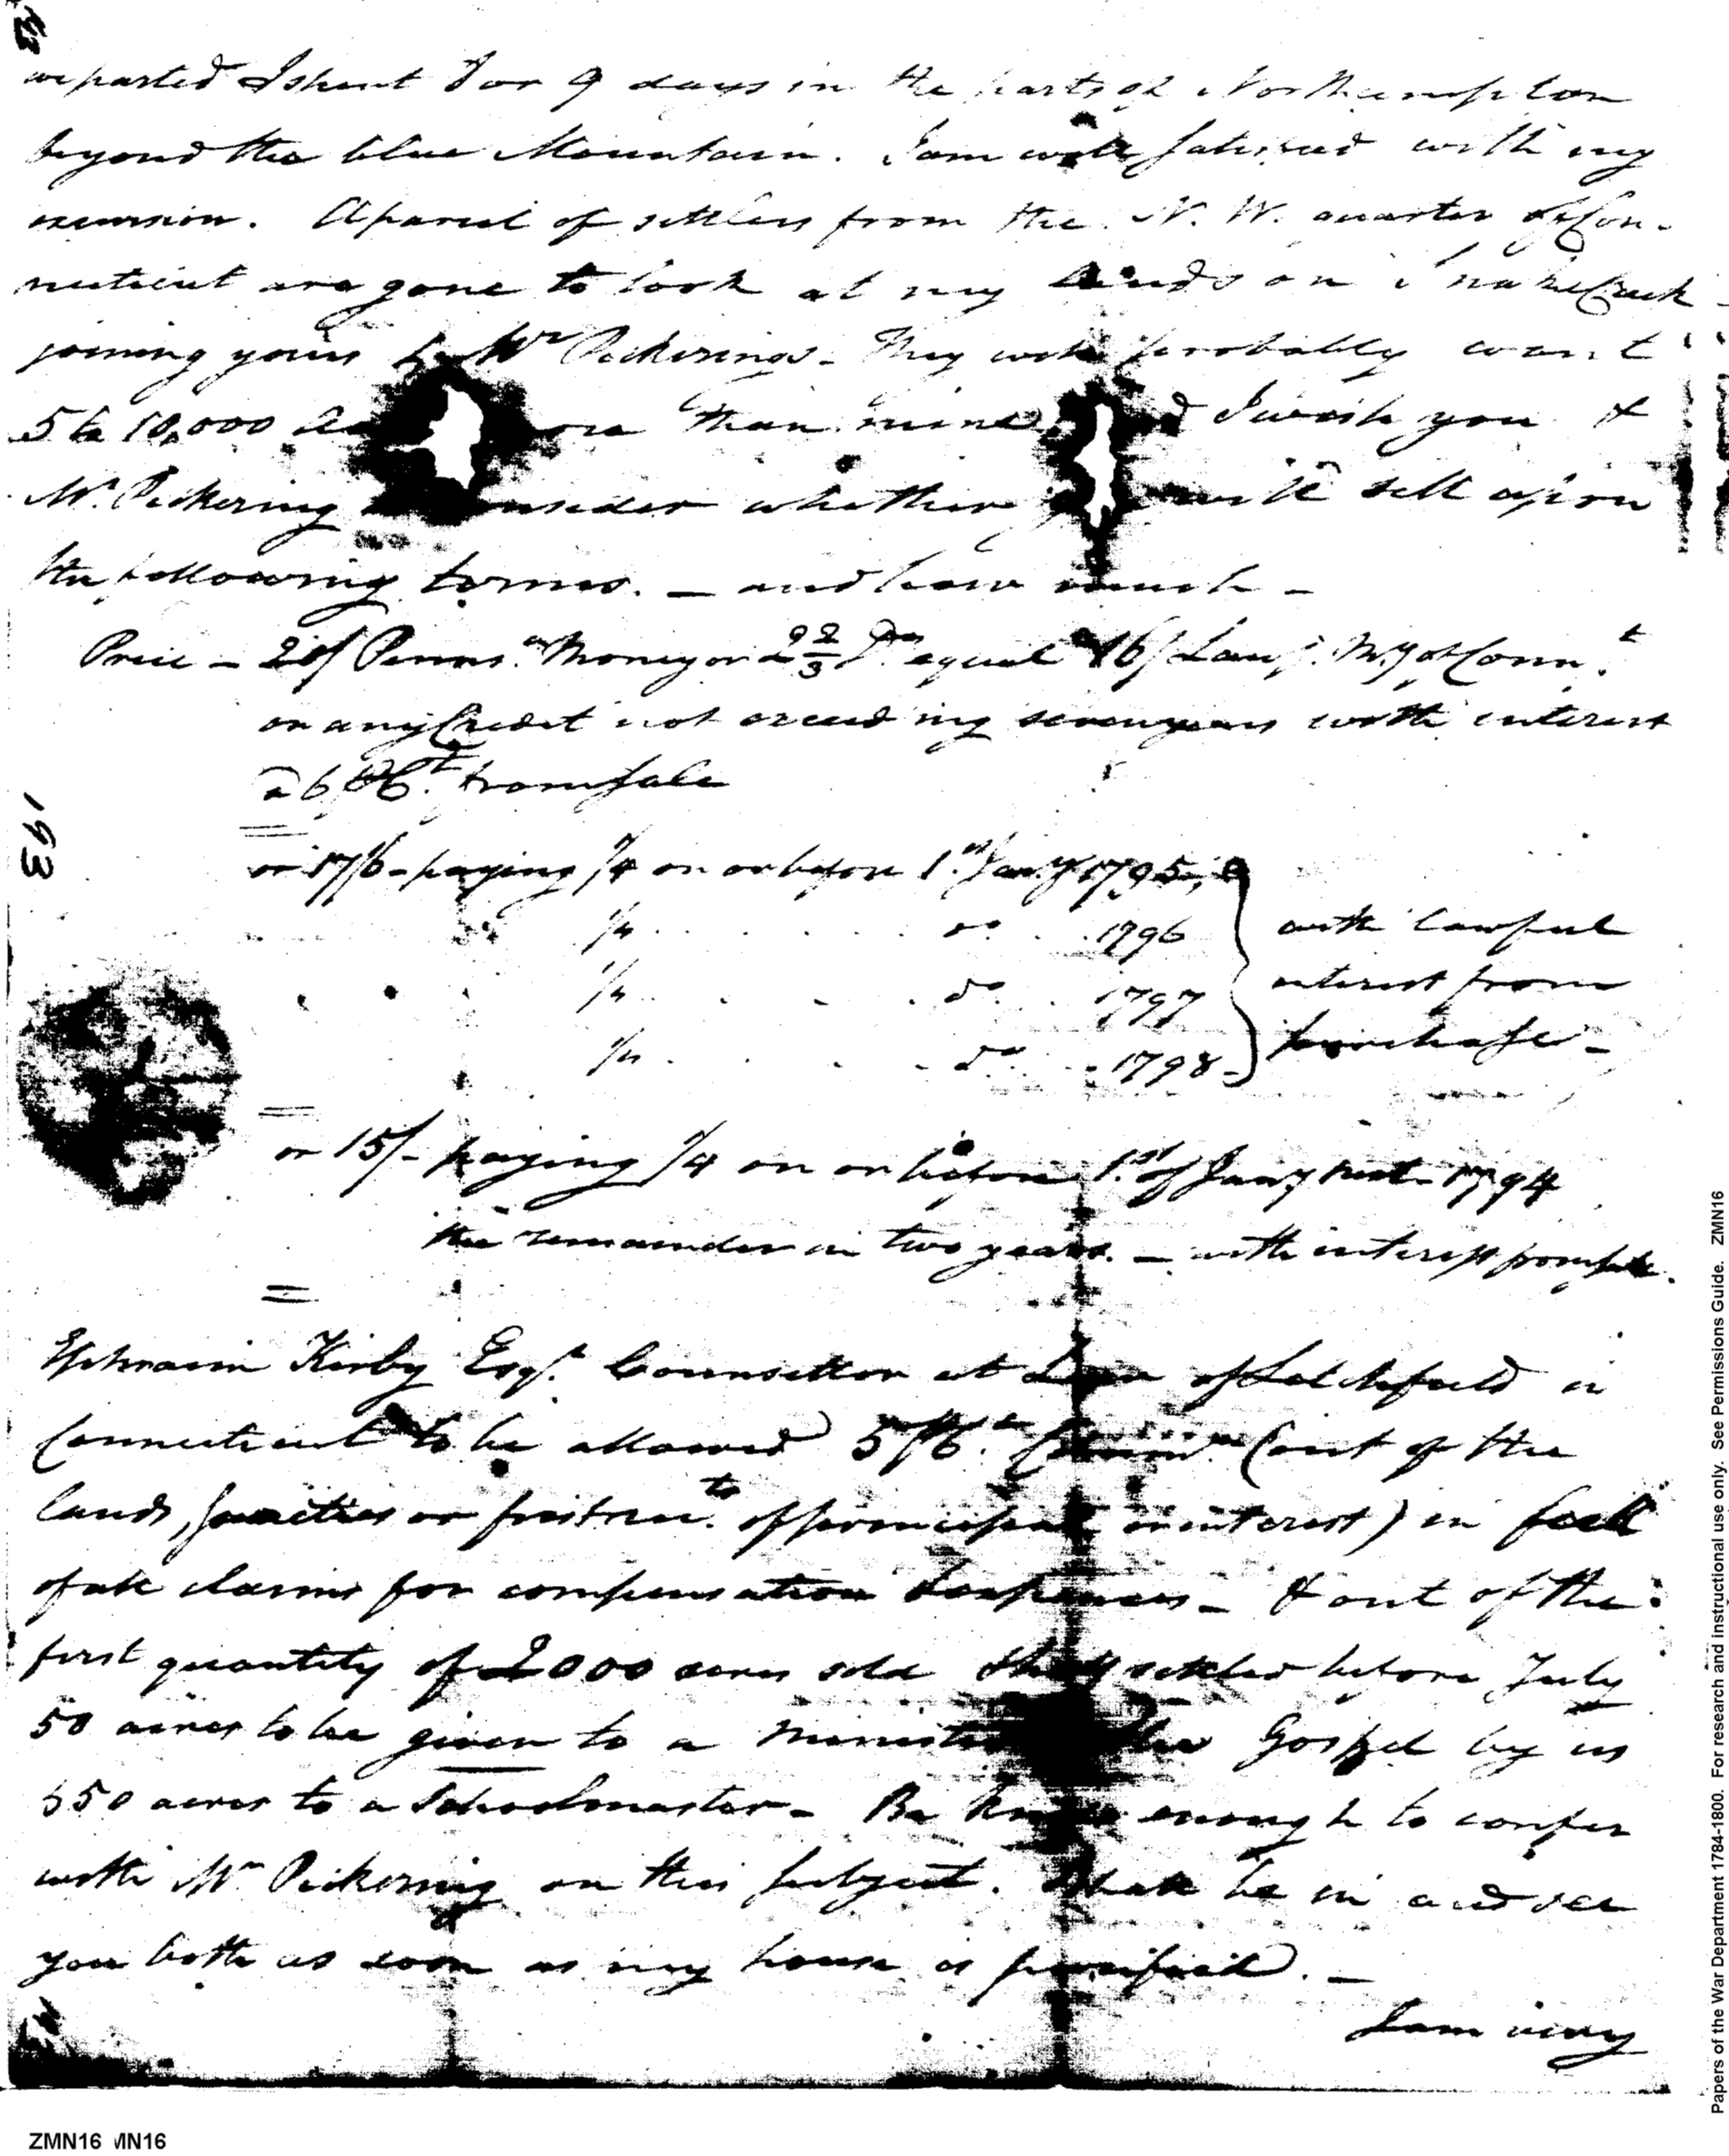 we parted I spent 8 or 9 days in the parts of Northampton
beyond the blue Mountain. I am well satisfied with my
excursion. A parcel of settlers from the N. W. quarter of Con-
necticut are gone to look at my lands on Snake Creek
joining yours & Mr Pickerings. They will probably want
5 to 10,000 more than mine I wish you &
Mr. Pickering consider whether will sell upon
the following terms. — and how much —
Price — 20/ Penns.a Money or 2 2/3 Drs equal 16/ Law. My of Connt.
on any Credit not exceeding seven years with interest
a 6 P Ct. from sale
or 17/6 - paying 1/4 on or before 1st Jany 1795,
1/4 . . . . . do . . 1796 with lawful
1/4 . . . . do . . 1797 interest from
1/4 . . . . do . . 1798 - purchase —
or 15/- paying 1/4 on or before 1st of Jany next - 1794
the remainder in two years. — with interest from sale.
Ephraim Kirby Esqr. Counsellor at Law of Litchfield in
Connecticut to be allowed 5 P Ct. (out of the
lands, or first of principal or interest) in full
of all claims for compensation & expences — & out of the
first quantity of 2000 acres sold settled before July
50 acres to be given to a Minister the Gospel by us
& 50 acres to a Schoolmaster — Be kind enough to confer
with Mr Pickering on this subject. I shall be in and see
you both as soon as my house is purified. —
I am very
193
Papers of the War Department 1784-1800. For research and instructional use only. See Permissions Guide. ZMN16
ZMN16 MN16